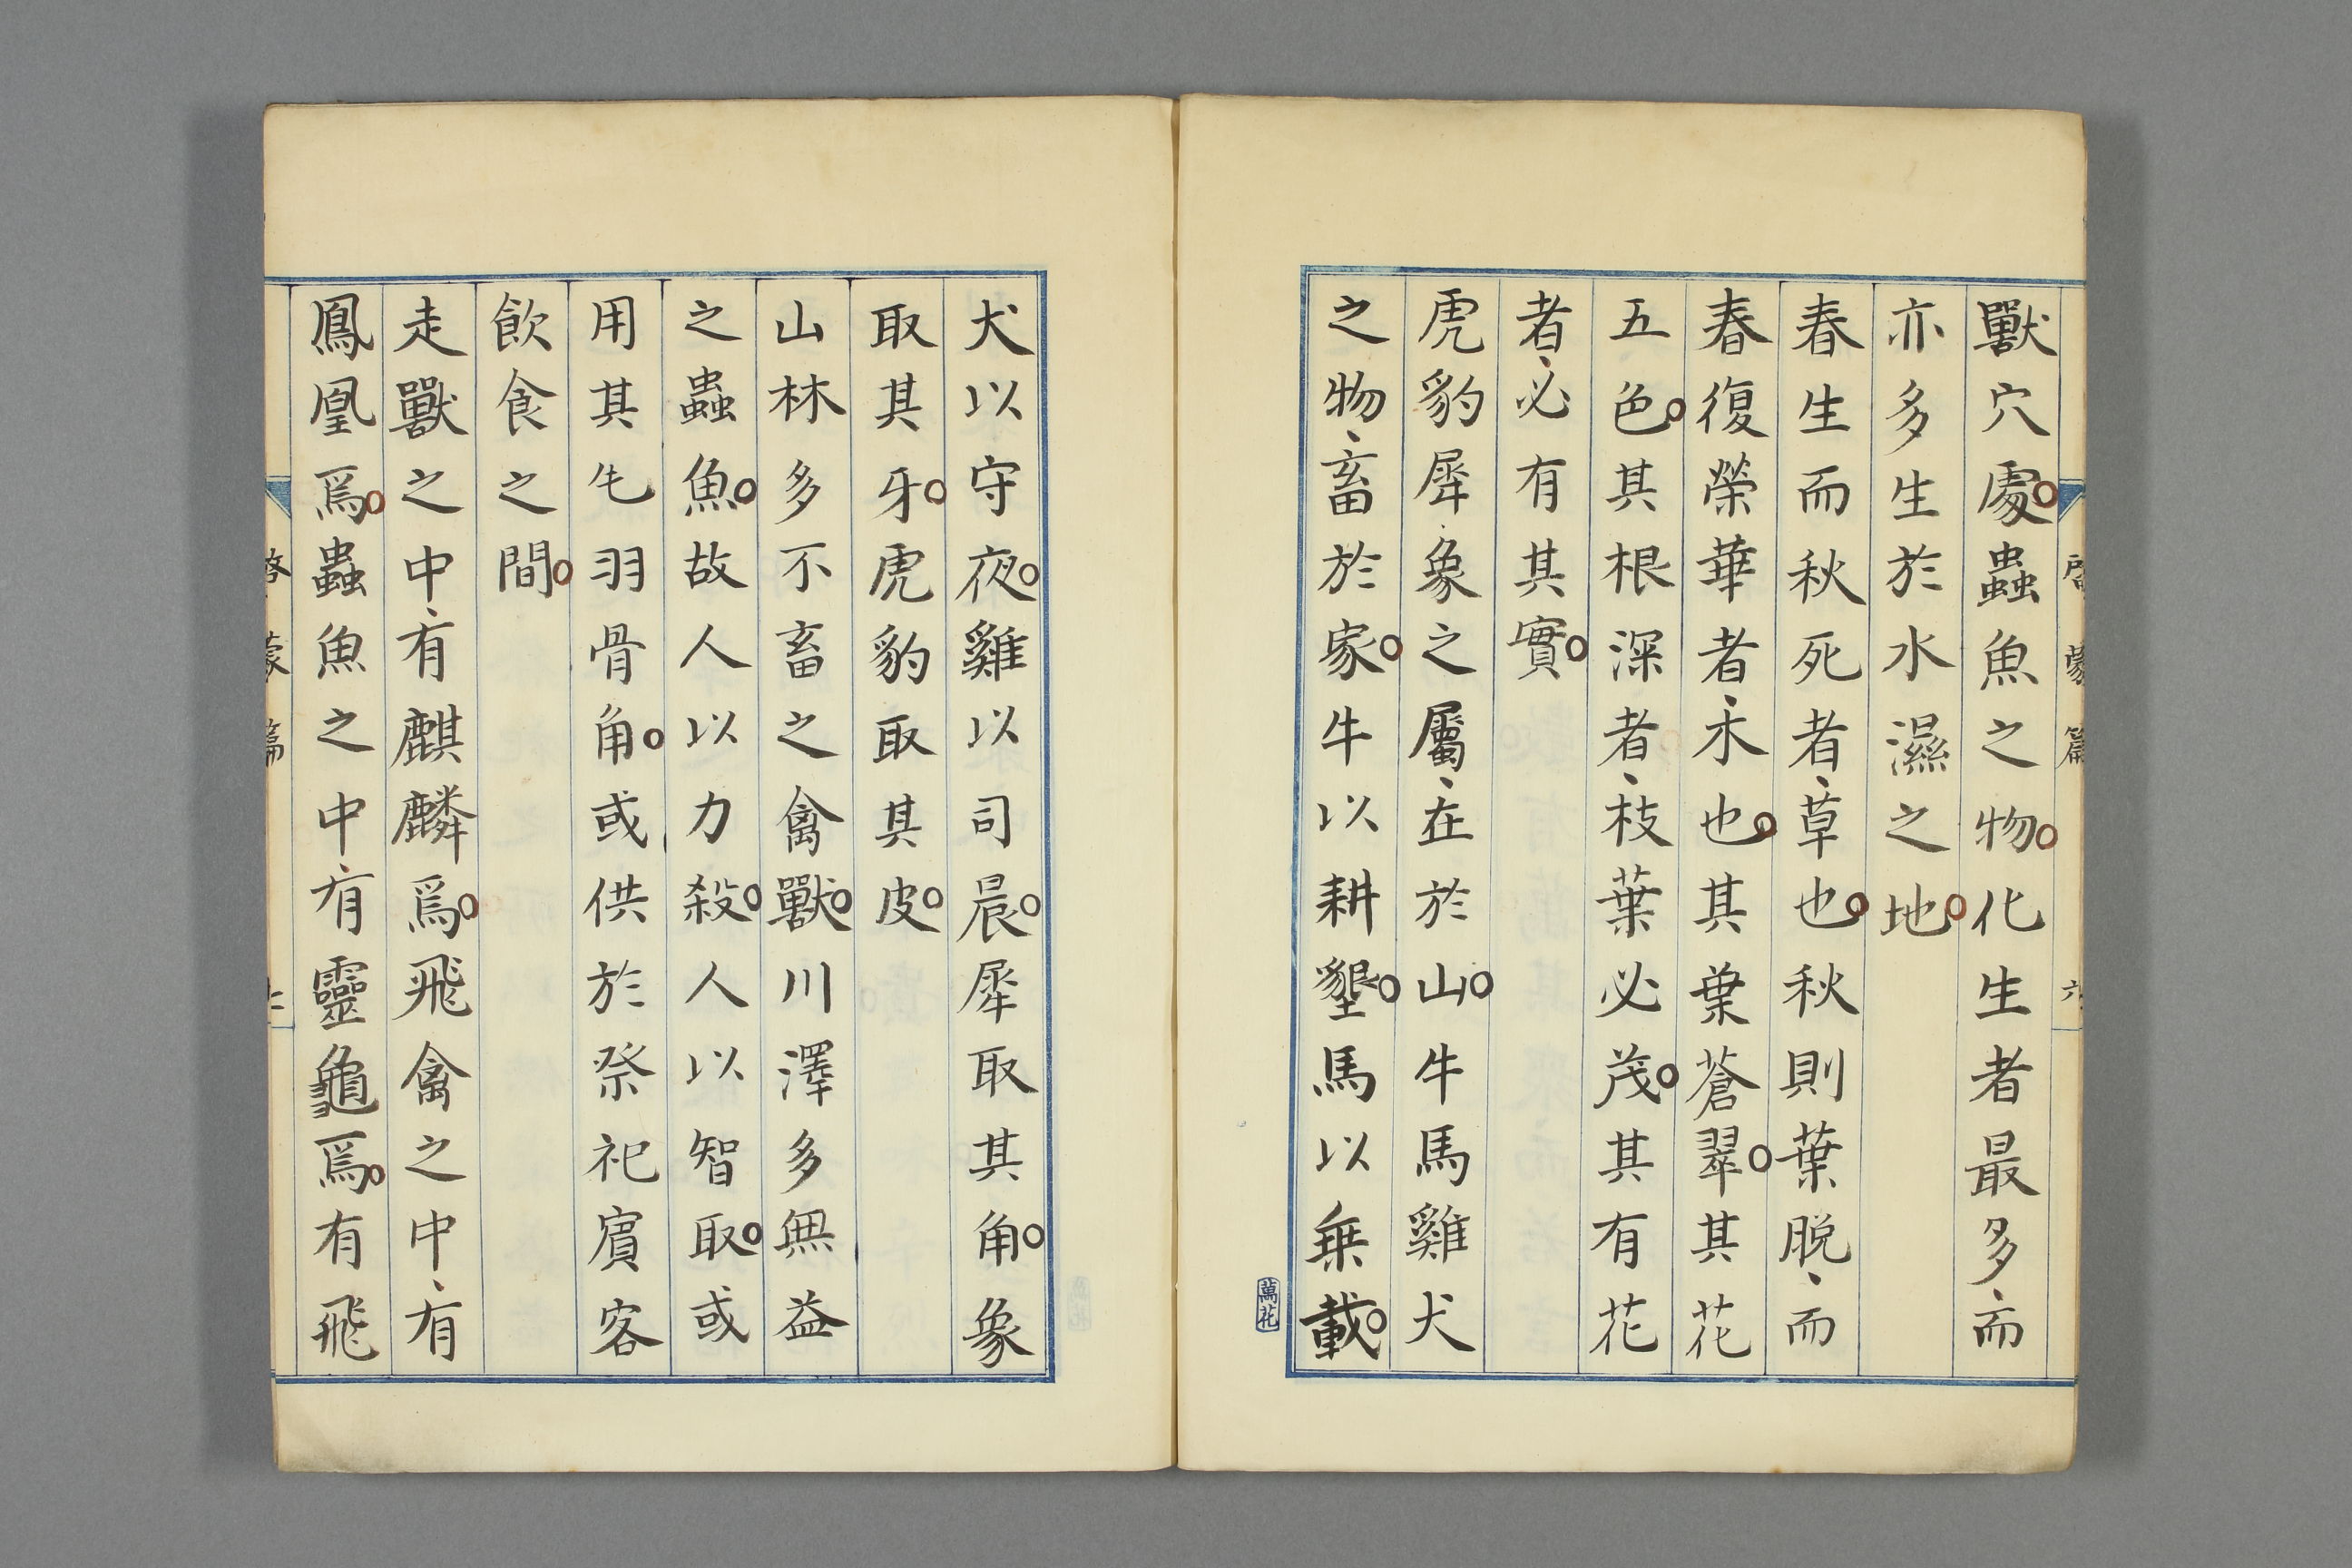 啓蒙篇 六
獸穴處蟲魚之物化生者最多而
亦多生於水濕之地
春生而秋死者草也秋則葉脫而
春復榮華者木也其葉蒼翠其花
五色其根深者枝葉必茂其有花
者必有其實
虎豹犀象之屬在於山牛馬雞犬
之物畜於家牛以耕墾馬以乗載
萬花
犬以守夜雞以司晨犀取其角象
取其牙虎豹取其皮
山林多不畜之禽獸川澤多無益
之蟲魚故人以力殺人以智取或
用其毛羽骨角或供於祭祀賓客
飮食之間
走獸之中有麒麟焉飛禽之中有
鳳凰焉蟲魚之中有靈龜焉有飛
啓蒙篇